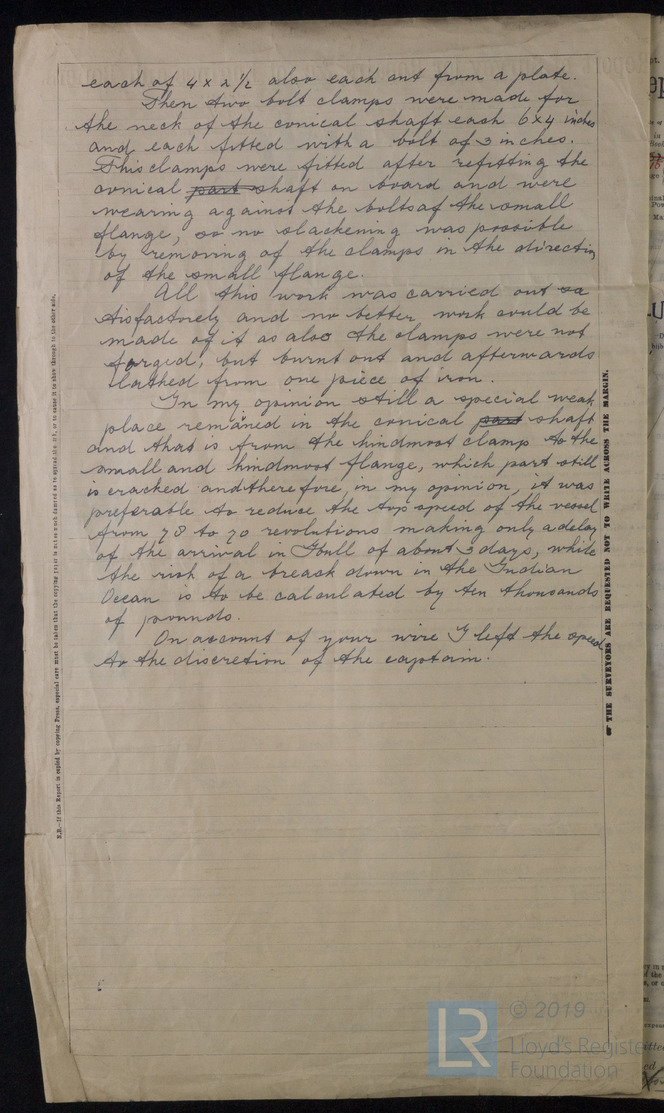 each of 4 x 2 1/2 also each cut from a plate.
Then two bolt clamps were made for
the neck of the conical shaft each 6x4 inches
and each fitted with a bolt of 3 inches.
This clamps were fitted after refitting the
conical part shaft on board and were
wearing against the bolts of the small
flange, so no slackening was possible
by removing of the clamps in the direction
of the small flange.
All this work was carried out sa
tisfactorely and no better work could be
made of it as also the clamps were not
forged, but burnt out and afterwards
lathed from one piece of iron.
In my opinion still a special weak
place remained in the conical part shaft
and that is from the hindmost clamp to the
small and hindmost flange, which part still
is cracked and therefore, in my opinion, it was
preferable to reduce the top speed of the vessel
from 78 to 70 revolutions making only a delay
of the arrival in Hull of about 3 days, while
the risk of a breack down in the Indian
Ocean is to be calculated by ten thousands
of pounds.
On account of your wire I left the speed
to the discretion of the captain.
N.B.—If this Report is copied by copying Press, especial care must be taken that the copying paper is not so much damped as to spread the ink, or to cause it to show through to the other side.
THE SURVEYORS ARE REQUESTED NOT TO WRITE ACROSS THE MARGIN.
LR
© 2019
Lloyd's Register
Foundation